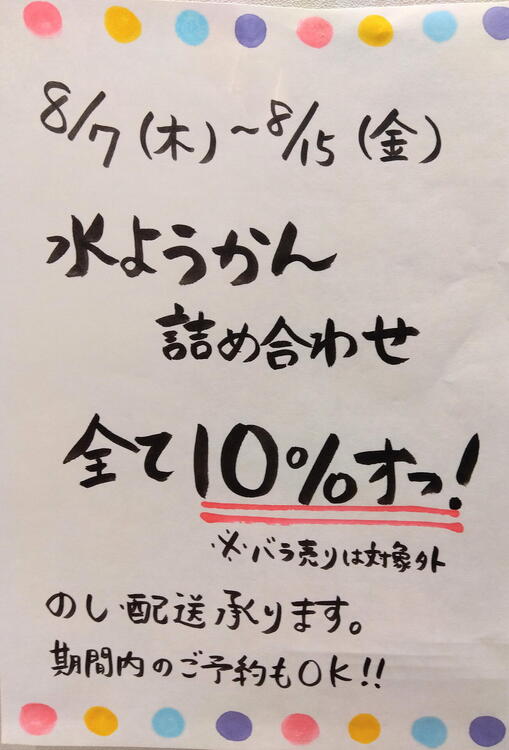 8/7(木)~8/15(金)
水ようかん
詰め合わせ
全て10%オフ!
※バラ売りは対象外
のし・配送承ります。
期間内のご予約もOK!!